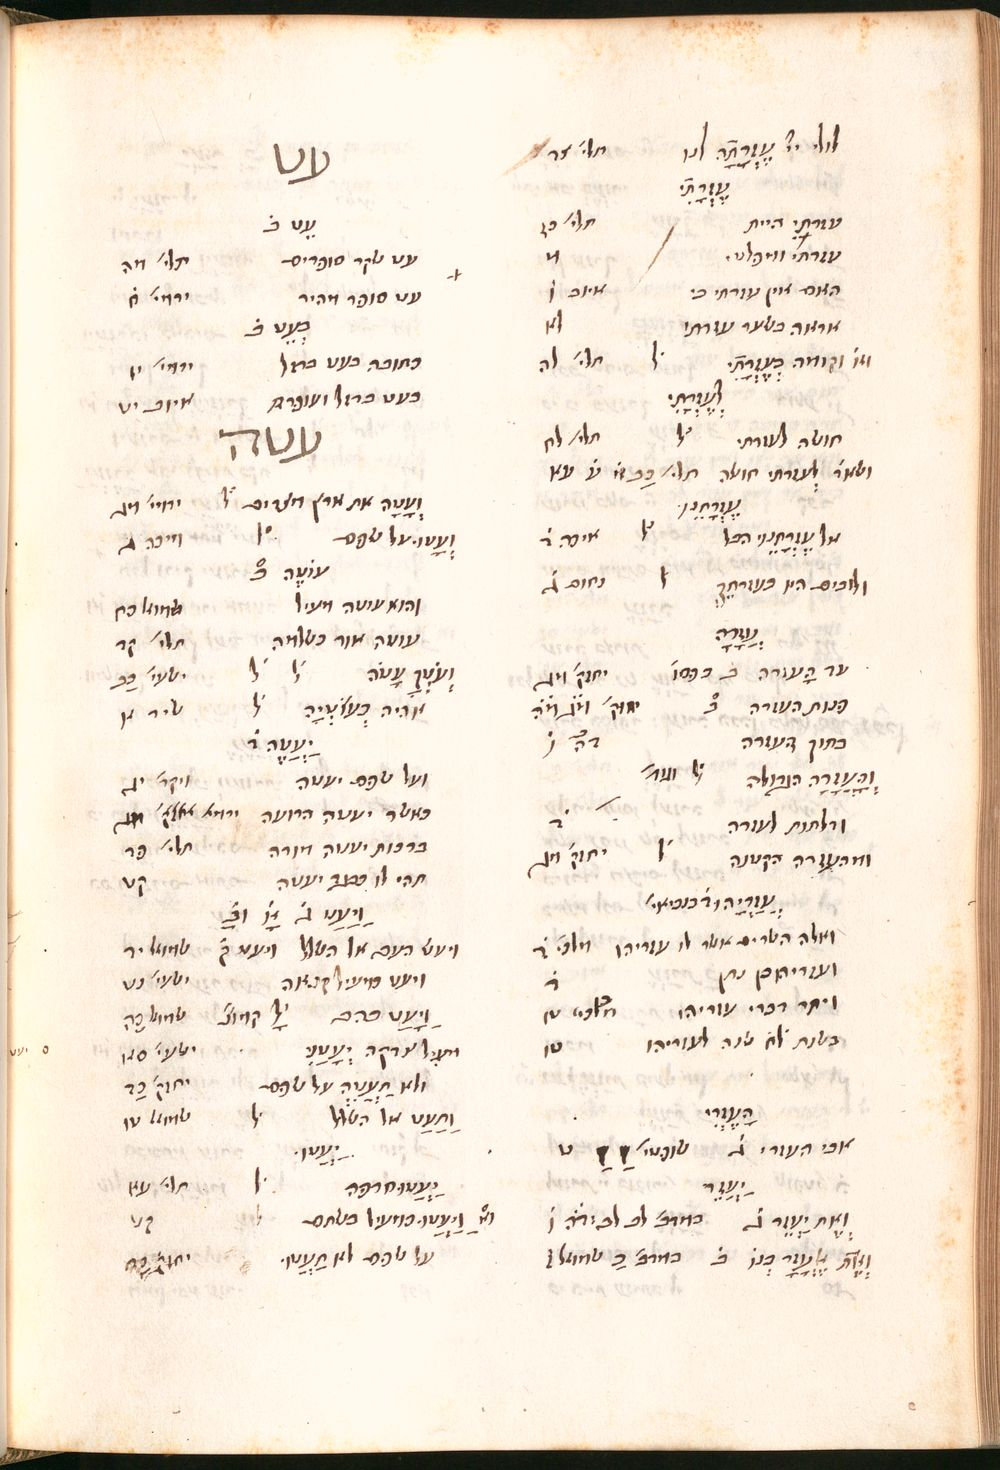 לולי יי עֶזְרָתָה לנו תהלי׳ צד
עֶזְרָתִי
עזרתי היית תהלי׳ כז
עזרתי ומפלטי מ
האם אין עזרתי בי איוב ו
אראה בשער עזרתי לא
וגו׳ וקומה בְּעֶזְרָתִי ל׳ תהלי׳ לה
לְעֶזְרָתִי
חושה לעזרתי ל׳ תהלי׳ לח
ושאר לעזרתי חושה תהלי׳ כב ע עא
עֶזְרָתֵנוּ
אל עֶזְרָתֵנוּ הבל ל׳ איכה ד
ולובים היו בעזרתך ל׳ נחום ג
עֲזָרָה
עד הָעזרה ב בפסו׳ יחזק׳ מג
פנות העזרה ב יחזק׳ מג מה
בתוך העזרה דה ו
וְהָעֲזָרָה הגדולה ל׳
ודלתות לעזרה ד
ומהעזרה הקטנה ל׳ יחזק׳ מג
עֲזַרְיָהוּ
ואלה השרים אשר לו עזריהו מלכי׳ ד
ועזריהו בן נתן ד
ויתר דברי עזריהו מלכי׳ טו
בשנת לח שנה לעזריהו טו
הָעֶזְרִי
אבי העזרי ג שופטי׳ ו
יַעְזֵר
וְאֶת יַעְזֵר ג במדב׳ לב
וְאֶת אֶלְעָזָר בְּנוֹ ב במדב׳ כ שמואל ז
עט
עֵט ב
עט שקר סופרים ירמי׳ ח
עט סופר מהיר תהלי׳ מה
בְּעֵט ב
כתובה בעט ברזל ירמי׳ יז
בעט ברזל ועופרת איוב יט
עטה
וְעָטָה את ארץ מצרים ל׳ ירמי׳ מג
וְעָטוּ על שפם ל׳ מיכה ג
עוֹטֶה ב
והוא עוטה מעיל שמואל כח
עוטה אור כשלמה תהלי׳ קד
וְעֹטְךָ עָטֹה ל׳ ל׳ ישעי׳ כב
אהיה כְּעוֹטְיָה ל׳ שיר א
יַעְטֶה ד
ועל שפם יעטה ויקר׳ יג
כאשר יעטה הרועה ירמי׳ מג
ברכות יעטה מורה תהלי׳ פד
תהי לו כבגד יעטה קט
וַיַּעַט ג
ויעט העם אל השלל שמואל יד
ויעט כמעיל קנאה ישעי׳ נט
וַיָּעַט בהם ל׳ קמוץ שמואל כה
מעיל צדקה יְעָטָנִי ישעי׳ סא
ולא תַעְטֶה על שפם יחזק׳ כד
וַתַּעַט אל השלל ל׳ שמואל טו
יַעְטוּ
יַעְטוּ חרפה ל׳ תהלי׳ עא
וא׳ וְיַעְטוּ כמעיל בשתם ל׳ קט
על שפם לא תַעְטוּ יחזק׳ כד